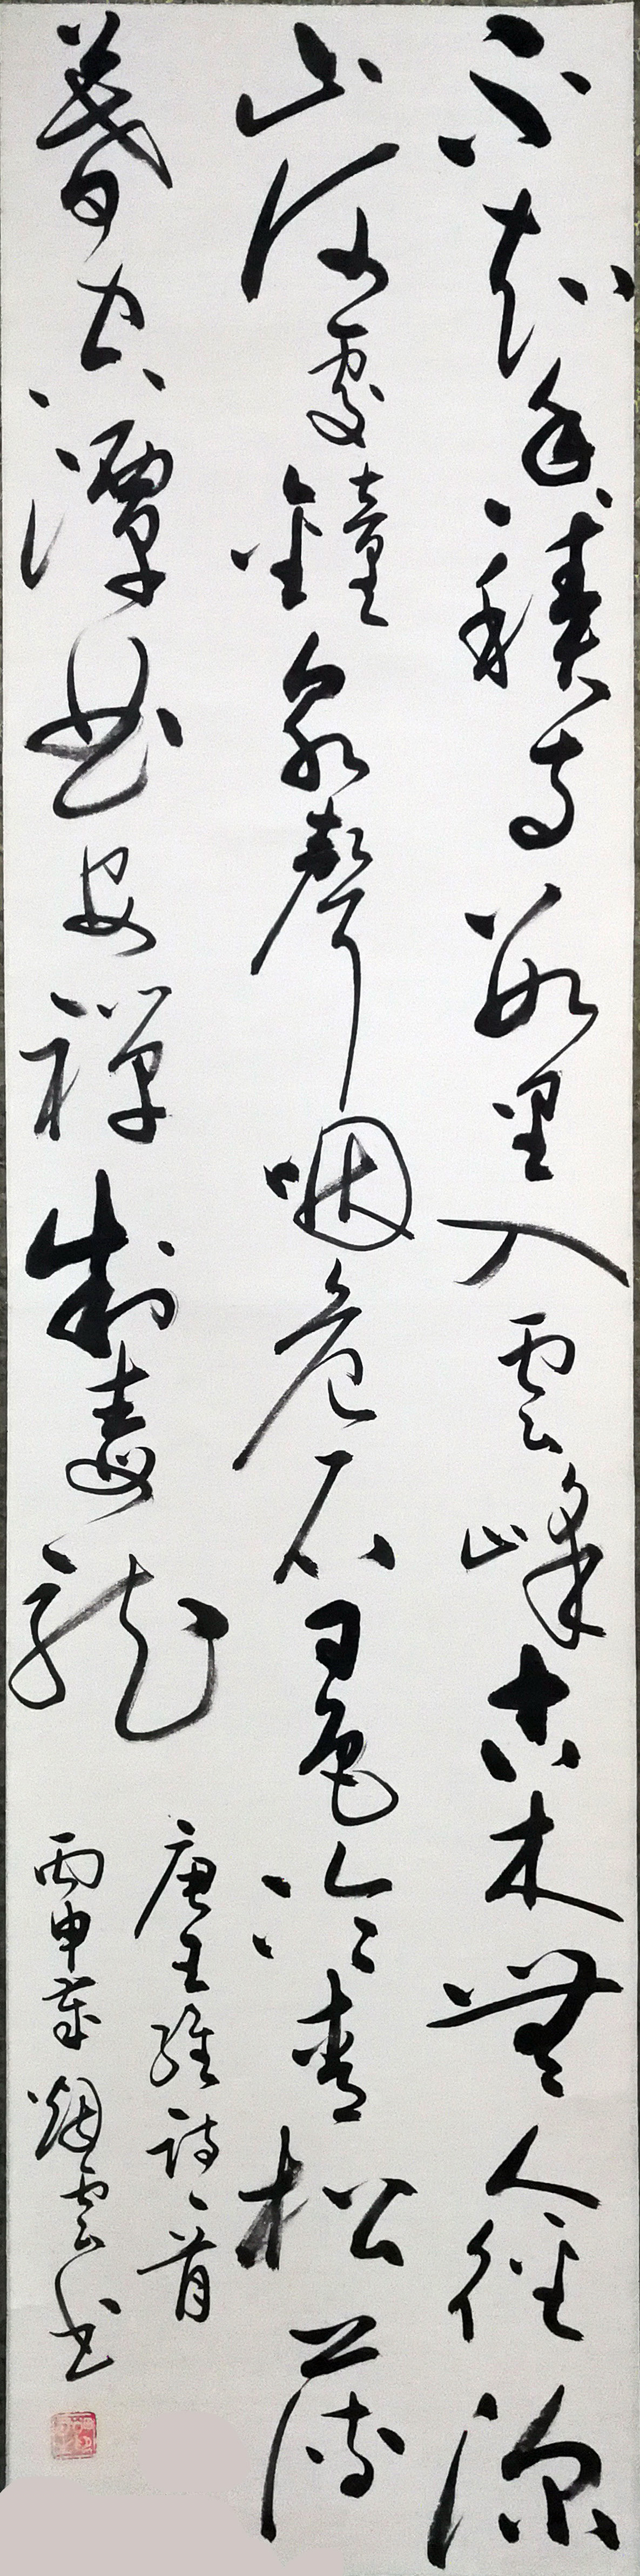 不知香積寺數里入雲峰古木無人徑深
山何處鐘泉聲咽危石日色冷青松薄
暮空潭曲安禪制毒龍
唐王維詩一首
丙申年烟雲书